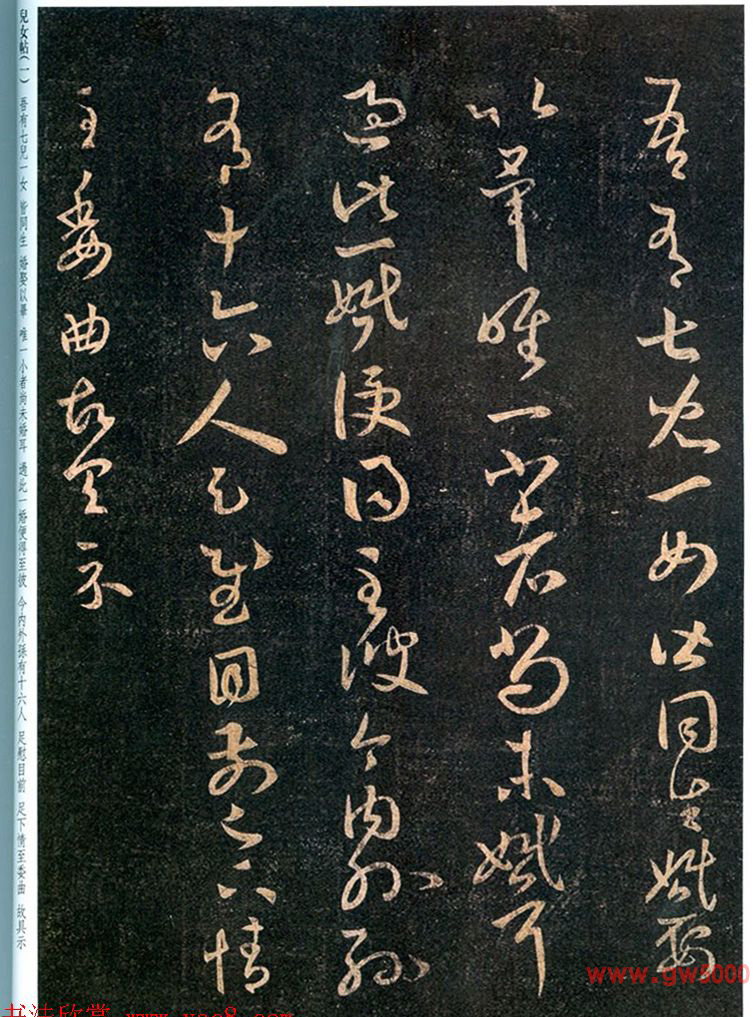 吾有七兒一女皆同生婚娶
以畢唯一小者尚未婚耳
過此一婚便得至彼今内外孫
有十六人足慰目前足下情
至委曲故具示
兒女帖(一) 吾有七兒一女 皆同生 婚娶以畢 唯一小者尚未婚耳 過此一婚便得至彼 今内外孫有十六人 足慰目前 足下情至委曲 故具示
www.gw5000
书法欣赏 www.yac8.com